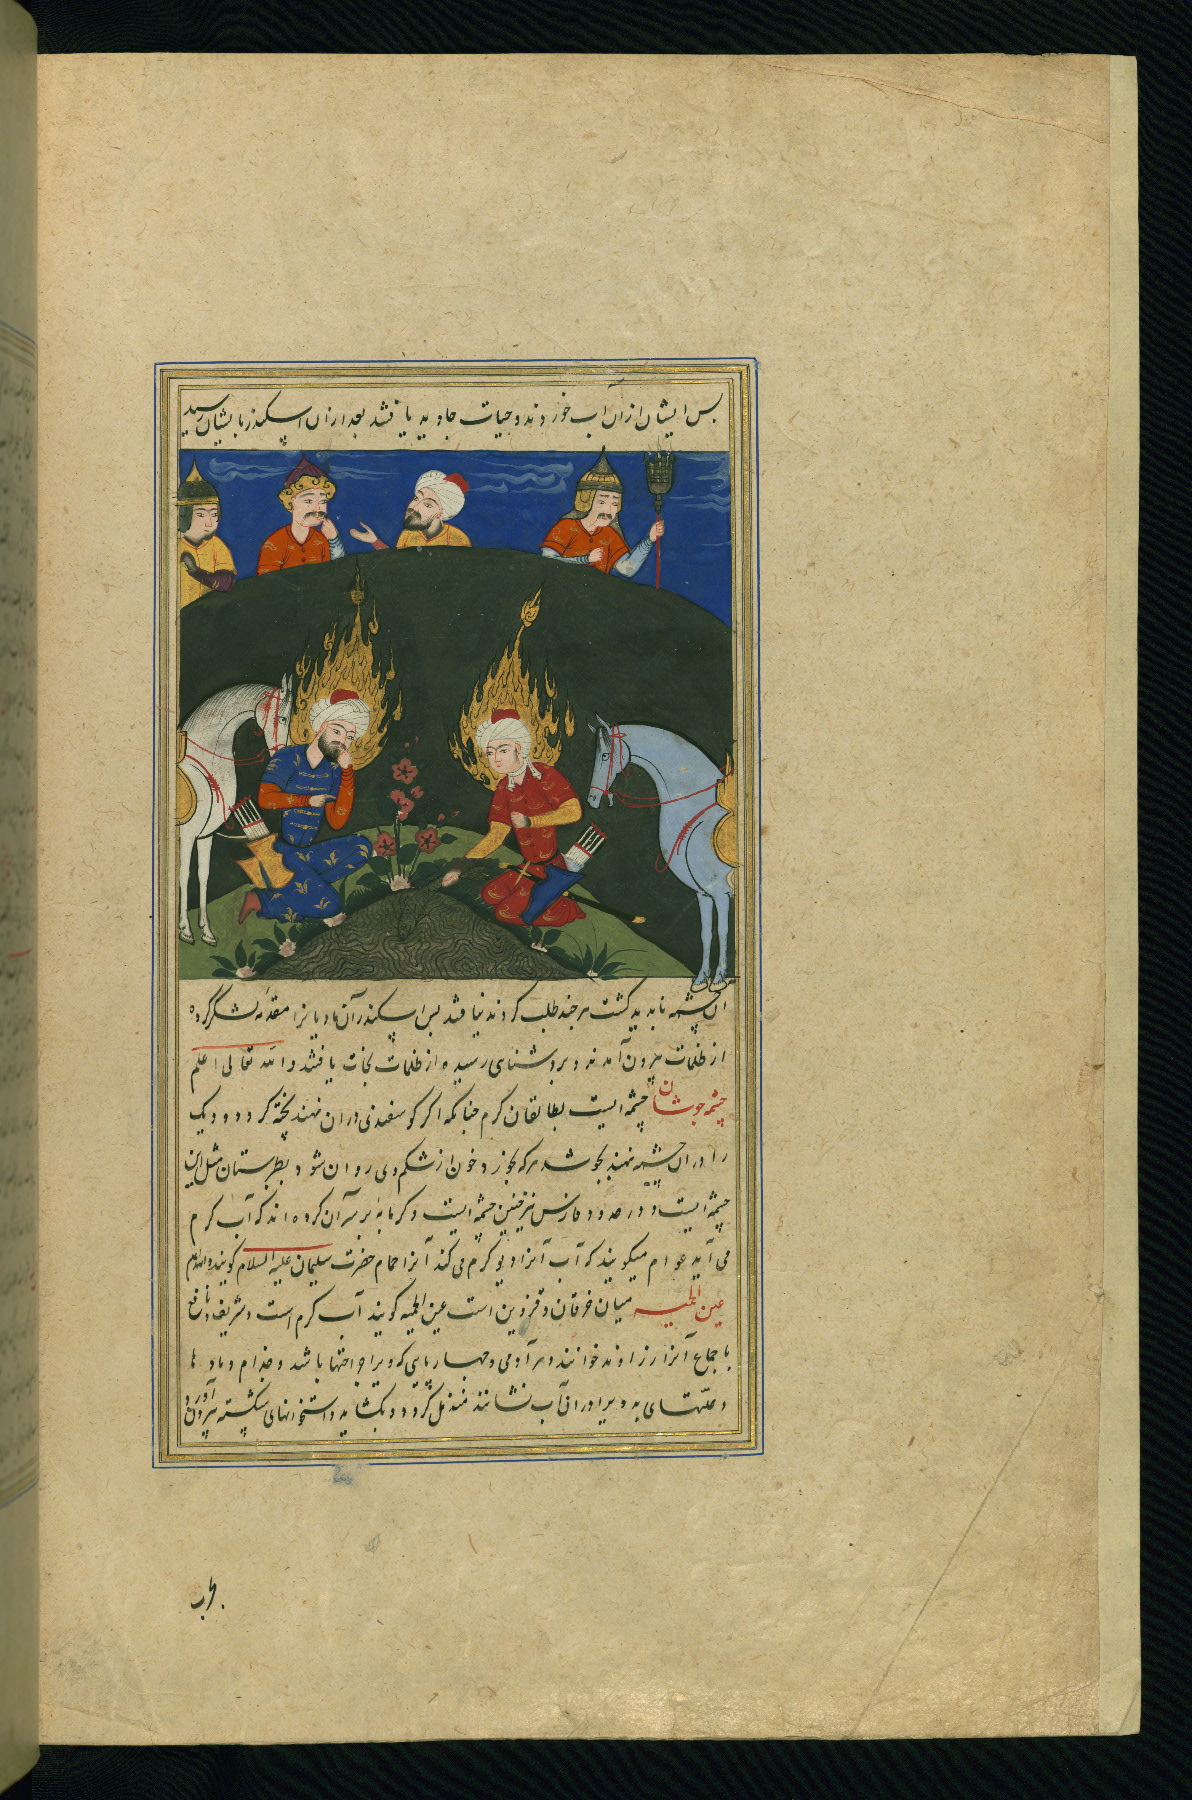 پس ایشان از آن آب خوردند و حیات جاوید یافتند بعد از آن اسکندر بایشان رسید
آن چشمه ناپدید گشت هر چند طلب کردند نیافتند پس اسکندر آن مادیانرا مقدمه لشکر کرده
از ظلمات بیرون آمدند و بروشنای رسیده از ظلمات نجات یافتند والله تعالی اعلم
چشمه جوشان چشمه ایست بطالقان گرم چنانکه اگر گوسفندی در آن نهند پخته گردد و دیک
را در آن چشمه نهند بجوشد هر که بخورد خون از شکم وی روان شود و بطبرستان مثل این
چشمه ایست و در حدود فارس نیز چنین چشمه ایست و گرمابهٔ بر سر آن کرده اند که آب گرم
می آید عوام میگویند که آب آنرا دیو گرم می کند آنرا حمام حضرت سلیمان علیه السلام گویند والله اعلم
عین الحمیه میان خرقان و قزوین است عین الحمیه گویند آب گرم است و شریف و نافع
باجماع آنرا رزاوند خوانند و هر آدمی و چهارپایی که ویرا جراحتها باشد و جذام و بادها
و علتهای بد ویرا در آن آب نشانند مندمل گردد و بگشاید و استخوانهای شکسته بیرون آورد و